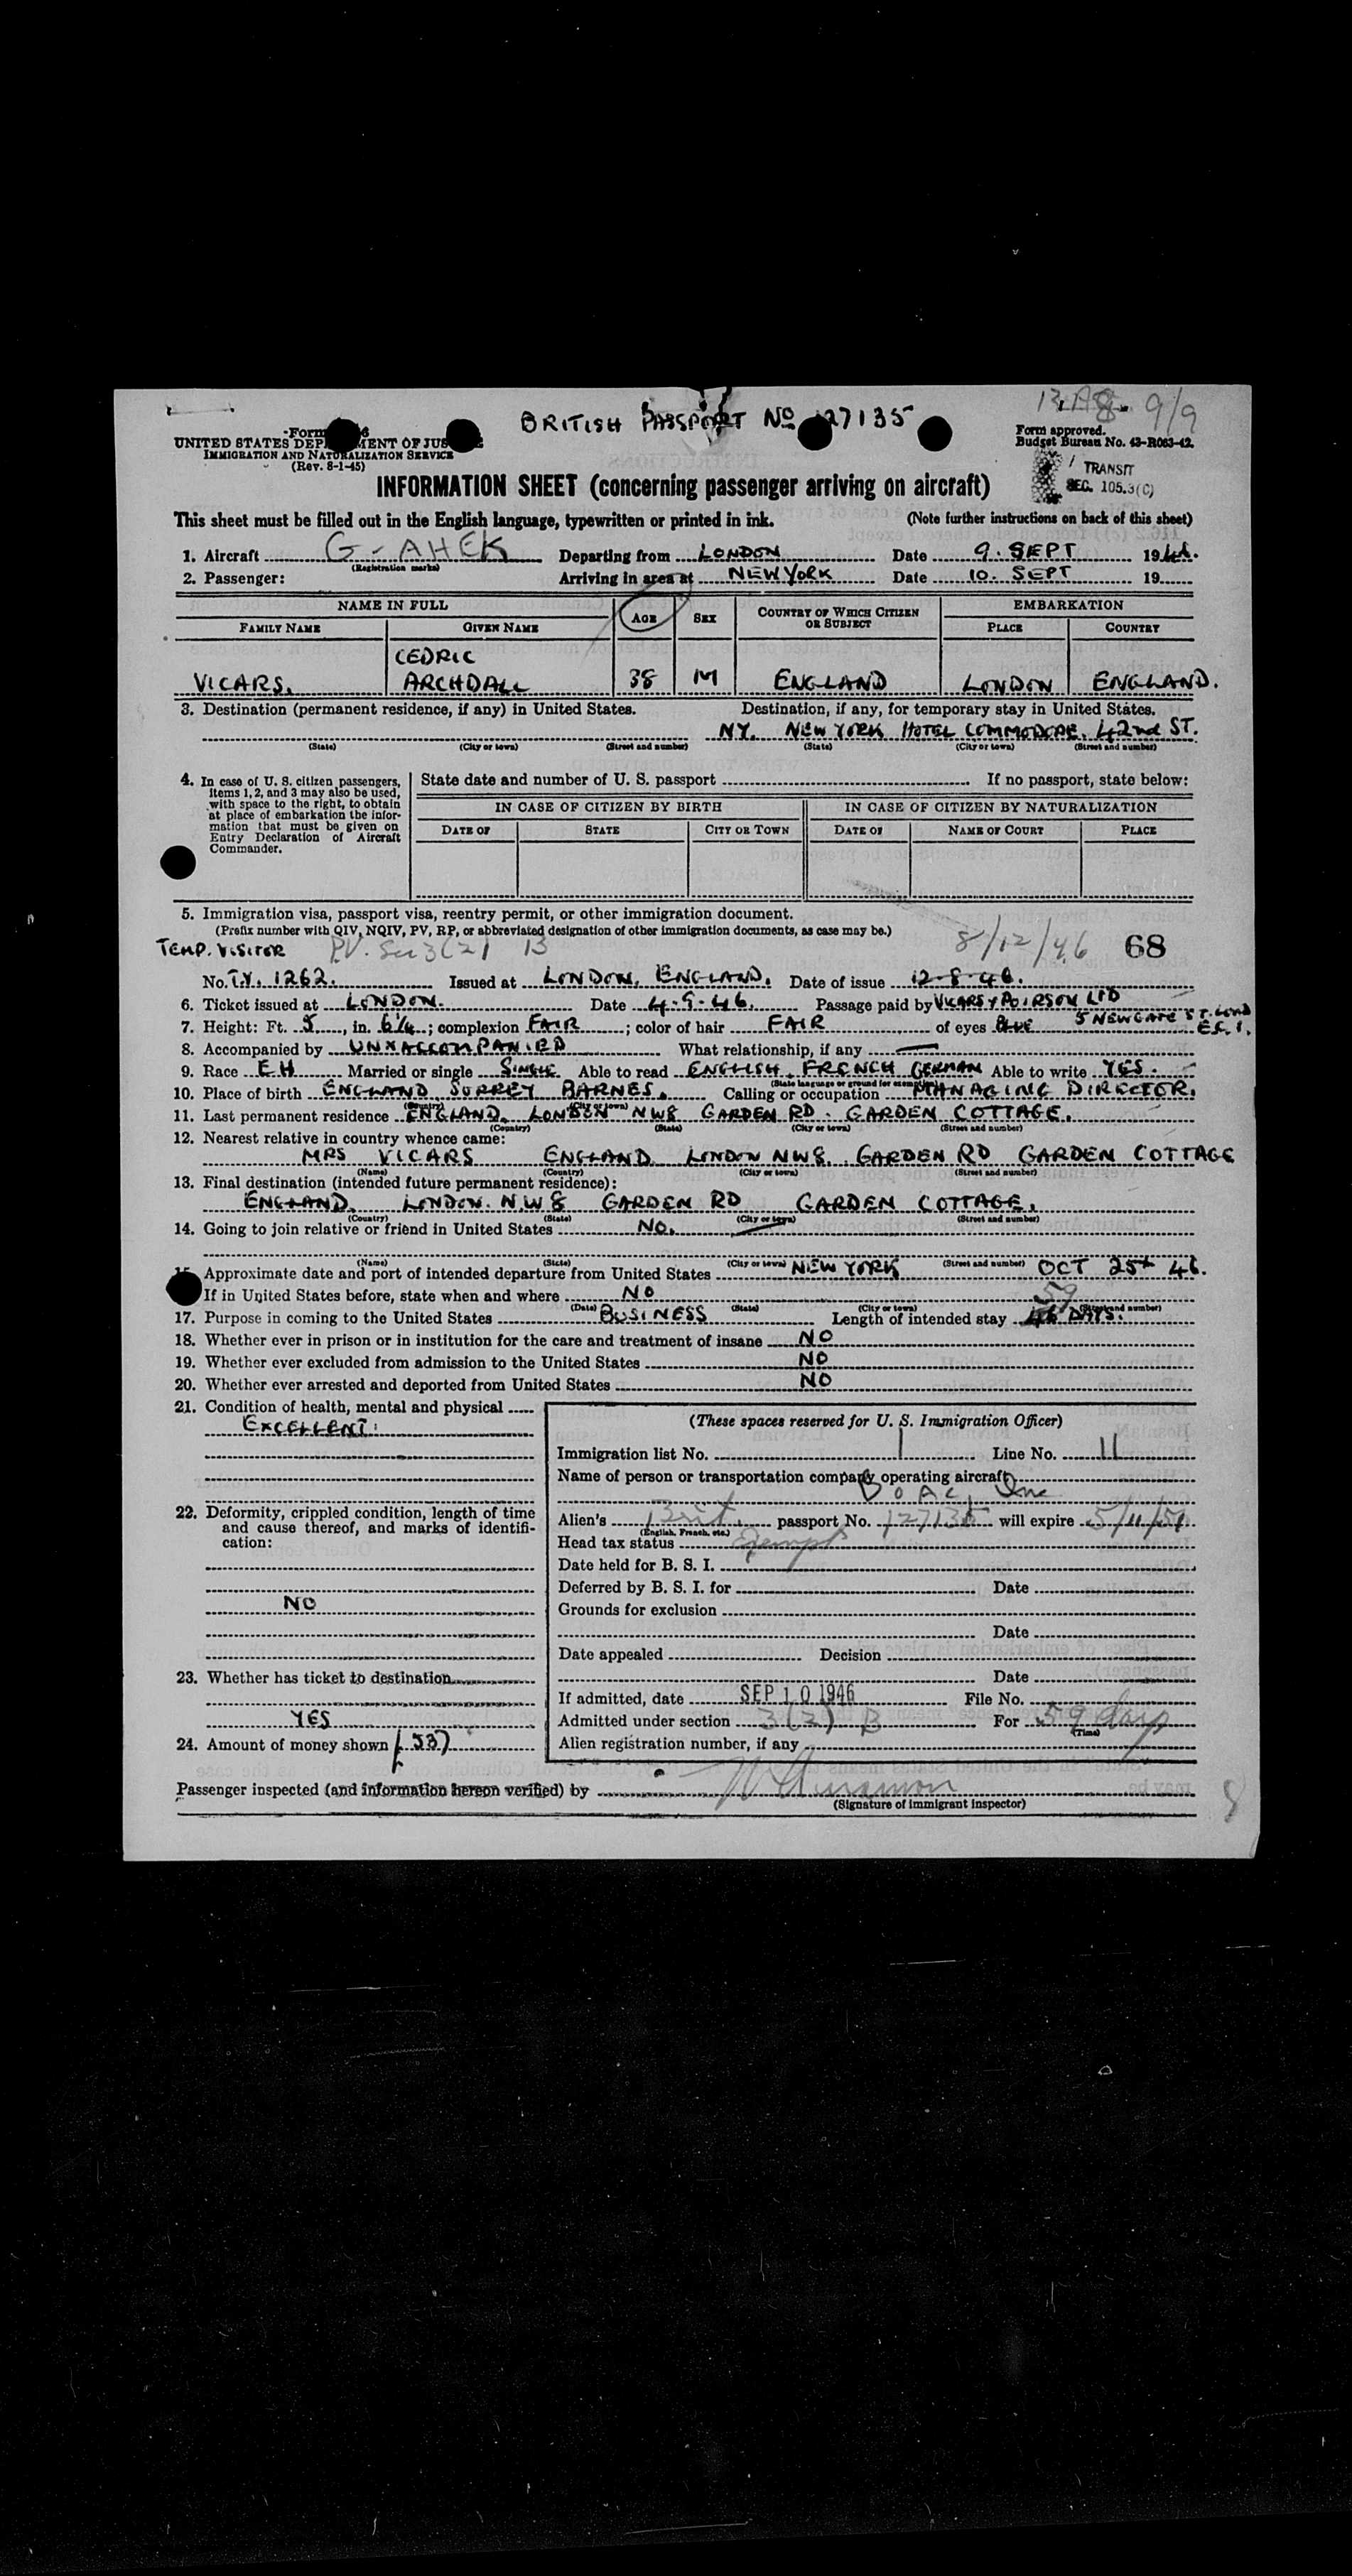 BRITISH PASSPORT No 127135
9/9
Form
UNITED STATES DEPARTMENT OF JUSTICE
IMMIGRATION AND NATURALIZATION SERVICE
(Rev. 8-1-45)
Form approved.
Budget Bureau No. 43-R063-42.
TRANSIT
SEC. 105.3(C)
INFORMATION SHEET (concerning passenger arriving on aircraft)
This sheet must be filled out in the English language, typewritten or printed in ink. (Note further instructions on back of this sheet)
1. Aircraft G-AHEK Departing from LONDON Date 9. SEPT 1946.
(Registration marks)
2. Passenger: Arriving in area at NEW YORK Date 10. SEPT 19
NAME IN FULL AGE SEX COUNTRY OF WHICH CITIZEN OR SUBJECT EMBARKATION
FAMILY NAME GIVEN NAME PLACE COUNTRY
VICARS. CEDRIC ARCHDALL 38 M ENGLAND LONDON ENGLAND.
3. Destination (permanent residence, if any) in United States. Destination, if any, for temporary stay in United States.
NY. NEW YORK HOTEL COMMODORE. 42nd ST.
(State) (City or town) (Street and number) (State) (City or town) (Street and number)
4. In case of U. S. citizen passengers, items 1, 2, and 3 may also be used, with space to the right, to obtain at place of embarkation the information that must be given on Entry Declaration of Aircraft Commander.
State date and number of U. S. passport If no passport, state below:
IN CASE OF CITIZEN BY BIRTH IN CASE OF CITIZEN BY NATURALIZATION
DATE OF STATE CITY OR TOWN DATE OF NAME OF COURT PLACE
5. Immigration visa, passport visa, reentry permit, or other immigration document.
(Prefix number with QIV, NQIV, PV, RP, or abbreviated designation of other immigration documents, as case may be.)
TEMP. VISITER P.V. Sec 3(2) B 8/12/46 68
No. T.V. 1262. Issued at LONDON, ENGLAND. Date of issue 12-8-46.
6. Ticket issued at LONDON. Date 4-9-46. Passage paid by VICARS & POIRSON LTD
5 NEWGATE ST. LOND E.C.1.
7. Height: Ft. 5, in. 6¼; complexion FAIR; color of hair FAIR of eyes BLUE
8. Accompanied by UNXACCOMPANIED What relationship, if any —
9. Race EH Married or single SINGLE Able to read ENGLISH, FRENCH GERMAN Able to write YES.
(State language or ground for exemption)
10. Place of birth ENGLAND SURREY BARNES. Calling or occupation MANAGING DIRECTOR.
(Country) (City or town)
11. Last permanent residence ENGLAND. LONDON NW8 GARDEN RD. GARDEN COTTAGE.
(Country) (State) (City or town) (Street and number)
12. Nearest relative in country whence came:
MRS VICARS ENGLAND LONDON NW8. GARDEN RD GARDEN COTTAGE
(Name) (Country) (City or town) (Street and number)
13. Final destination (intended future permanent residence):
ENGLAND. LONDON. N.W8 GARDEN RD GARDEN COTTAGE.
(Country) (State) (City or town) (Street and number)
14. Going to join relative or friend in United States No. —
(Name) (State) (City or town) (Street and number)
15. Approximate date and port of intended departure from United States NEW YORK OCT 25th 46.
If in United States before, state when and where NO
(Date) (State) (City or town) (Street and number)
17. Purpose in coming to the United States BUSINESS Length of intended stay 59 46 DAYS.
18. Whether ever in prison or in institution for the care and treatment of insane NO
19. Whether ever excluded from admission to the United States NO
20. Whether ever arrested and deported from United States NO
21. Condition of health, mental and physical
EXCELLENT.
22. Deformity, crippled condition, length of time and cause thereof, and marks of identification:
NO
23. Whether has ticket to destination
YES
24. Amount of money shown (£ 53)
(These spaces reserved for U. S. Immigration Officer)
Immigration list No. 1 Line No. 11
Name of person or transportation company operating aircraft
B O A C, Inc
Alien's Brit. passport No. 127135 will expire 5/11/51
(English, French, etc.)
Head tax status Exempt
Date held for B. S. I.
Deferred by B. S. I. for Date
Grounds for exclusion
Date
Date appealed Decision
Date
If admitted, date SEP 10 1946 File No.
Admitted under section 3(2) B For 59 days
(Time)
Alien registration number, if any
Passenger inspected (and information hereon verified) by
(Signature of immigrant inspector)
8